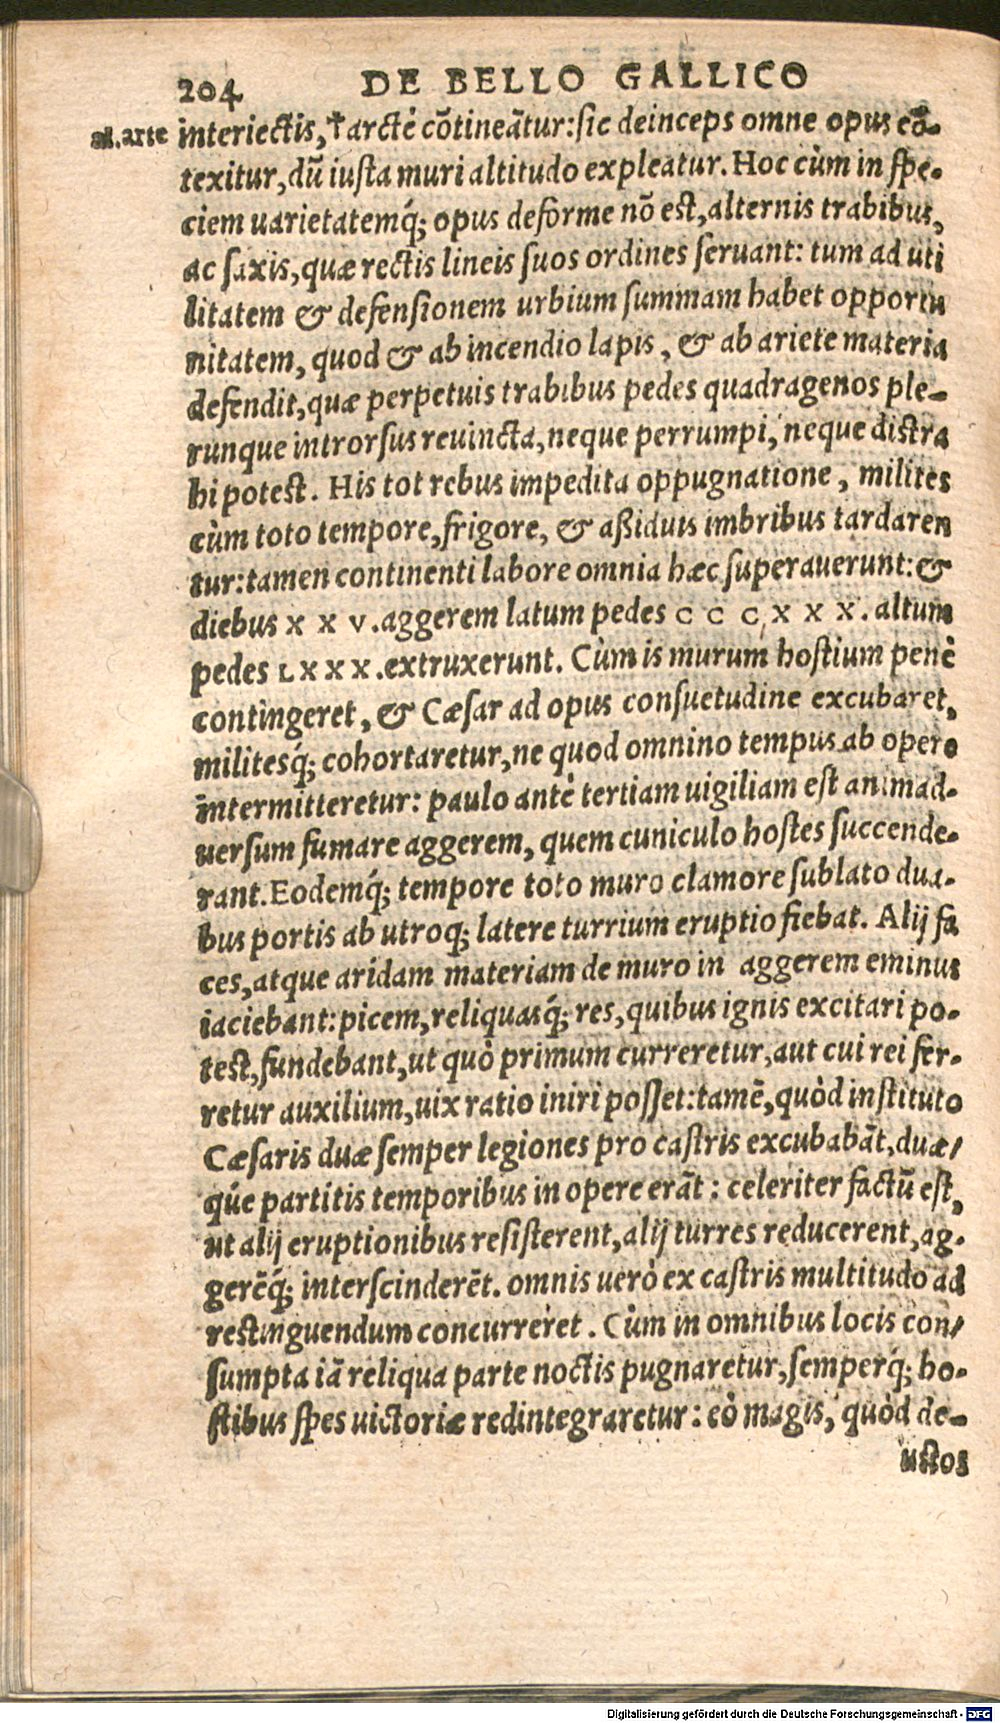 204 DE BELLO GALLICO
al. arte
interiectis, † arctè cōtineātur: sic deinceps omne opus cō-
texitur, dū iusta muri altitudo expleatur. Hoc cùm in spe-
ciem uarietatemq́; opus deforme nō est, alternis trabibus,
ac saxis, quæ rectis lineis suos ordines seruant: tum ad uti
litatem & defensionem urbium summam habet opportu
nitatem, quod & ab incendio lapis, & ab ariete materia
defendit, quæ perpetuis trabibus pedes quadragenos ple-
runque introrsus reuincta, neque perrumpi, neque distra
hi potest. His tot rebus impedita oppugnatione, milites
cùm toto tempore, frigore, & aßiduis imbribus tardaren
tur: tamen continenti labore omnia hæc superauerunt: &
diebus X X V. aggerem latum pedes C C C X X X. altum
pedes L X X X. extruxerunt. Cùm is murum hostium penè
contingeret, & Cæsar ad opus consuetudine excubaret,
militesq́; cohortaretur, ne quod omnino tempus ab opere
intermitteretur: paulo antè tertiam uigiliam est animad-
uersum fumare aggerem, quem cuniculo hostes succende-
rant. Eodemq́; tempore toto muro clamore sublato dua-
bus portis ab utroq; latere turrium eruptio fiebat. Alij fa
ces, atque aridam materiam de muro in aggerem eminus
iaciebant: picem, reliquasq́; res, quibus ignis excitari po-
test, fundebant, ut quò primum curreretur, aut cui rei fer-
retur auxilium, uix ratio iniri posset: tamē, quòd instituto
Cæsaris duæ semper legiones pro castris excubabāt, duæ/
qúe partitis temporibus in opere erāt: celeriter factū est,
ut alij eruptionibus resisterent, alij turres reducerent, ag-
gerēq́; interscinderēt. omnis uerò ex castris multitudo ad
restinguendum concurreret. Cùm in omnibus locis con/
sumpta iā reliqua parte noctis pugnaretur, semperq́; ho-
stibus spes uictoriæ redintegraretur: eò magis, quòd de-
ustos
Digitalisierung gefördert durch die Deutsche Forschungsgemeinschaft - DFG